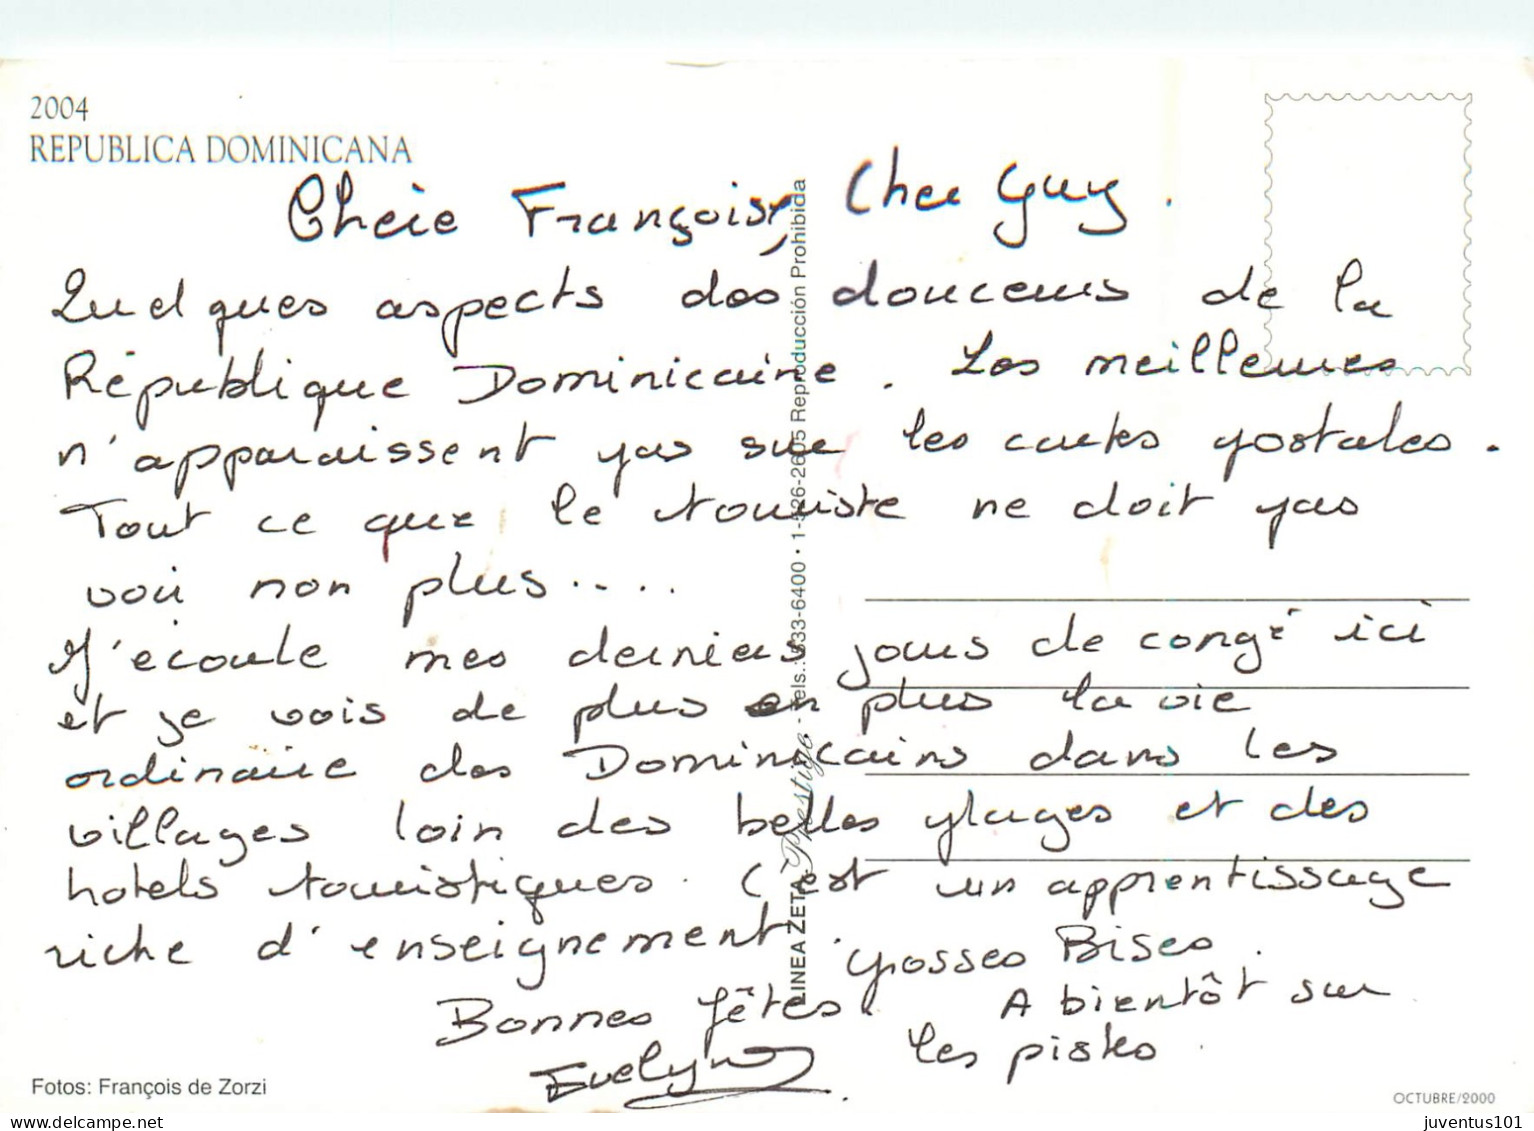 2004
REPUBLICA DOMINICANA
Chère Françoise, Cher Guy.
Quelques aspects des douceurs de la
République Dominicaine. Les meilleures
n'apparaissent pas sur les cartes postales.
Tout ce que le touriste ne doit pas
voir non plus....
J'écoule mes derniers jours de congé ici
et je vois de plus en plus la vie
ordinaire des Dominicains dans les
villages loin des belles plages et des
hotels touristiques. C'est un apprentissage
riche d'enseignement.
Grosses Bises.
Bonnes fêtes. A bientôt sur
les pistes.
Evelyne
LINEA ZETA Prestige - Tels.: 533-6400 • 1-526-2605 Reproducción Prohibida
Fotos: François de Zorzi
OCTUBRE/2000
delcampe.net
juventus101